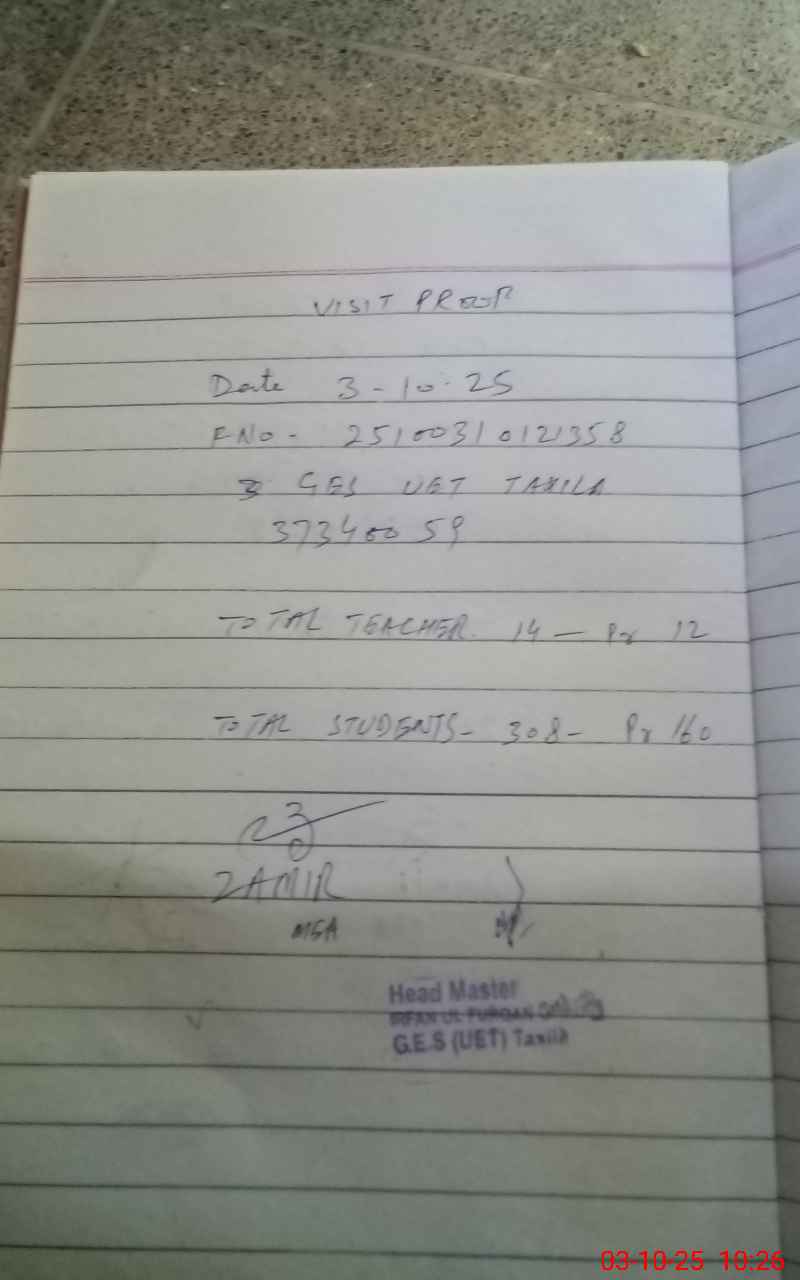 VISIT PROOF
Date 3-10-25
F NO - 25100310121358
GES UET TAXILA
37340059
TOTAL TEACHER. 14 — Pr 12
TOTAL STUDENTS - 308 - Pr 160
ZAMIR
MEA
Head Master
IRFAN UL FURQAN
G.E.S (UET) Taxila
03-10-25 10:26